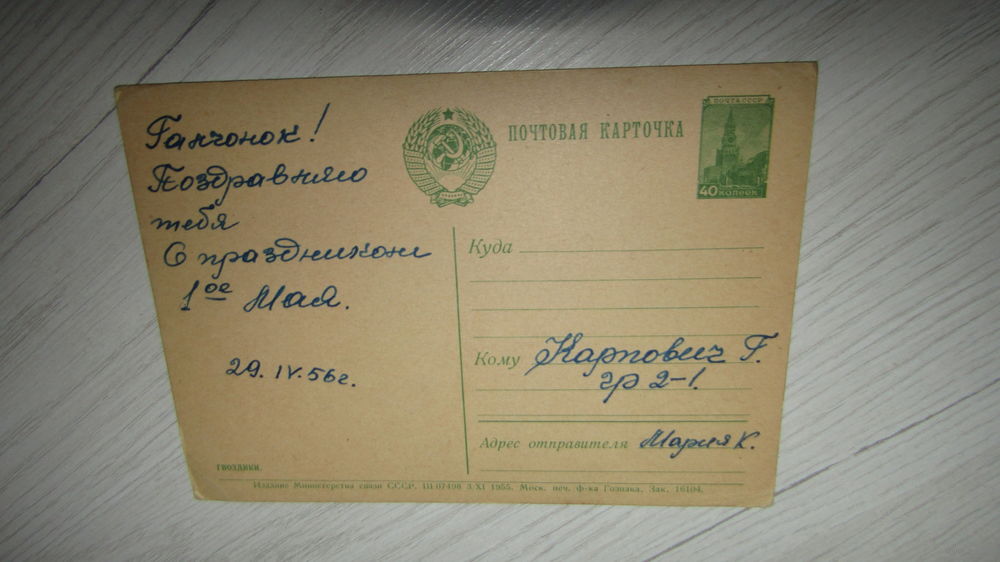 Ганчонок!
Поздравляю
тебя
С праздником
1ое Мая.
29. IV. 56 г.
ГВОЗДИКИ.
ПОЧТОВАЯ КАРТОЧКА
ПОЧТА СССР
40 КОПЕЕК
Куда
Кому Карпович Г.
гр 2-1.
Адрес отправителя Мария К.
Издание Министерства связи СССР. Ш 07498 3/XI 1955. Моск. печ. ф-ка Гознака. Зак. 16104.